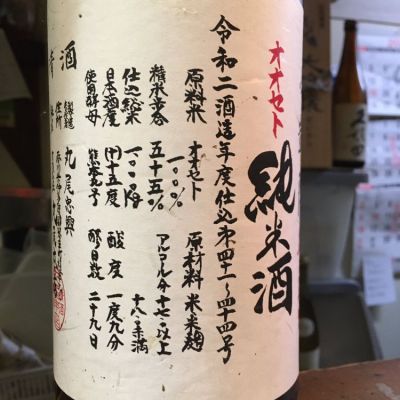 オオセト
純米酒
令和二酒造年度仕込第四十一〜四十四号
原料米 オオセト 一〇〇% 原材料 米 米麹
精米歩合 五十五% アルコール分 十七以上十八未満
仕込総米
日本酒度 (+)十五度 酸度 一度九分
使用酵母 熊本九号 醪日数 二十九日
酒
製造
住所
丸尾忠興